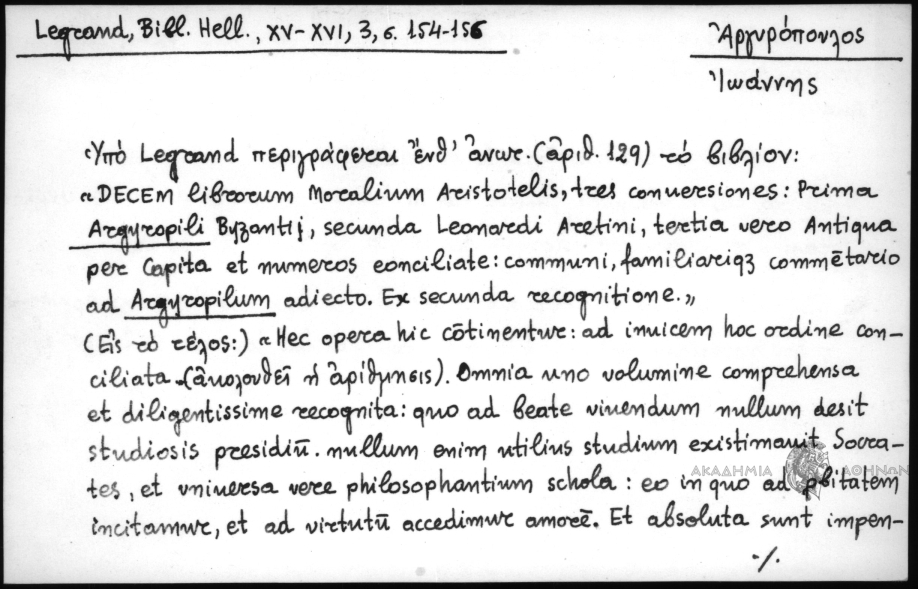 Legrand, Bibl. Hell., XV-XVI, 3, σ. 154-156
Ἀργυρόπουλος
Ἰωάννης
Ὑπό Legrand περιγράφεται ἔνθ' ἀνωτ. (ἀριθ. 129) τό βιβλίον:
«DECEM librorum Moralium Aristotelis, tres conuersiones: Prima
Argyropili Byzantij, secunda Leonardi Aretini, tertia vero Antiqua
per Capita et numeros conciliate: communi, familiariqꝫ commētario
ad Argyropilum adiecto. Ex secunda recognitione.»
(Εἰς τό τέλος:) «Hec opera hic cōtinentur: ad inuicem hoc ordine con-
ciliata. (ἀκολουθεῖ ἡ ἀρίθμησις). Omnia uno volumine comprehensa
et diligentissime recognita: quo ad beate viuendum nullum desit
studiosis presidiū. nullum enim utilius studium existimauit Socra-
tes, et vniuersa vere philosophantium schola: eo in quo ad pbitatem
incitamur, et ad virtutū accedimur amorē. Et absoluta sunt impen-
./.
ΑΚΑΔΗΜΙΑ ΑΘΗΝΩΝ